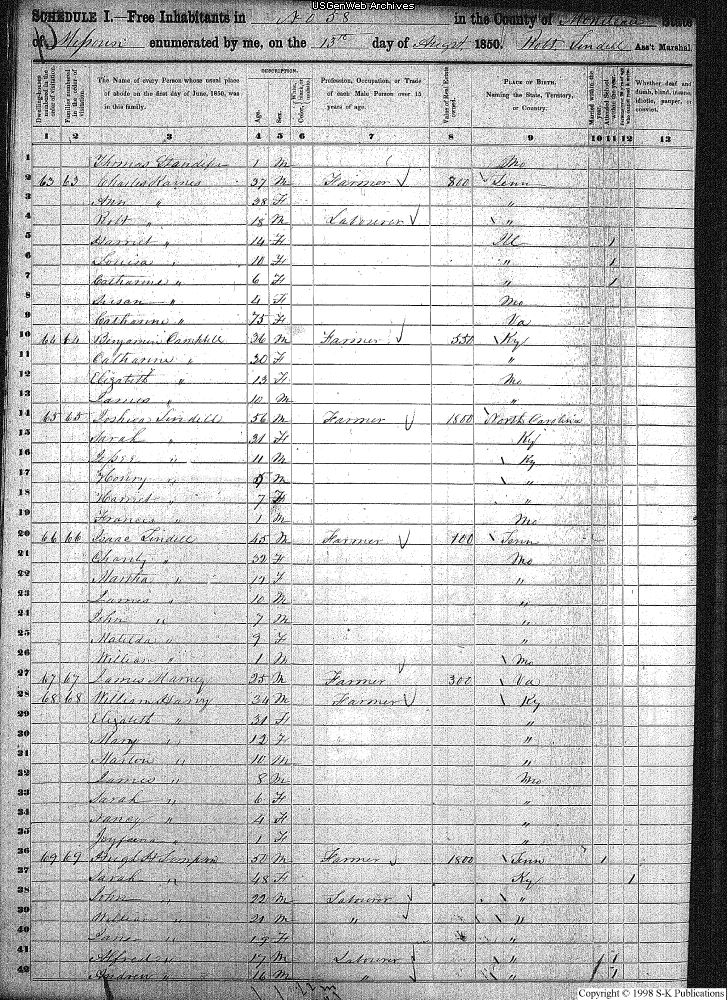 USGenWeb Archives
SCHEDULE I.—Free Inhabitants in No 58 in the County of State
of Missouri enumerated by me, on the 13th day of August 1850. Robt Lindell Ass't Marshal.
Dwelling-houses numbered in the order of visitation.
Families numbered in the order of visitation.
The Name of every Person whose usual place of abode on the first day of June, 1850, was in this family.
DESCRIPTION.
Age.
Sex.
Color,
Profession, Occupation, or Trade of each Male Person over 15 years of age.
Value of Real Estate owned.
PLACE OF BIRTH. Naming the State, Territory, or Country.
Married within the year.
Attended School within the year.
Whether deaf and dumb, blind, insane, idiotic, pauper, or convict.
1 2 3 4 5 6 7 8 9 10 11 12 13
1 Thomas 1 M Mo
2 63 63 Charles Raines 37 M Farmer 800 Tenn
3 Ann " 38 F "
4 Robt " 18 M Labourer "
5 Harriet " 14 F Ill 1
6 Louisa " 10 F " 1
7 Catharine " 6 F " 1
8 Susan " 4 F Mo
9 Catharine " 75 F Va
10 64 64 Benjamin Campbell 36 M Farmer 550 Ky
11 Catharine " 30 F "
12 Elizabeth " 13 F Mo
13 James " 10 M "
14 65 65 Joshua Lindell 56 M Farmer 1800 North Carolina
15 Sarah " 31 F Ky
16 Jesse " 11 M Ky
17 Henry " M "
18 Harriet " 7 F "
19 Francis " 1 M Mo
20 66 66 Isaac Lindell 45 M Farmer 100 Tenn
21 Charity " 32 F Mo
22 Martha " 12 F "
23 James " 10 M "
24 John " 7 M "
25 Matilda " 9 F "
26 William " 1 M Mo
27 67 67 James Marney 25 M Farmer 300 Va
28 68 68 William Harvy 34 M Farmer Ky
29 Elizabeth " 31 F "
30 Mary " 12 F "
31 Marion " 10 M "
32 James " 8 M Mo
33 Sarah " 6 F "
34 Nancy " 4 F "
35 " 1 F "
36 69 69 Simpson 50 M Farmer 1800 Tenn 1
37 Sarah " 48 F Ky 1
38 John " 22 M Labourer "
39 William " 21 M " "
40 Jane " 19 F "
41 Alfred " 17 M Labourer " 1
42 Andrew " 16 M " " 1
Copyright © 1998 S-K Publications